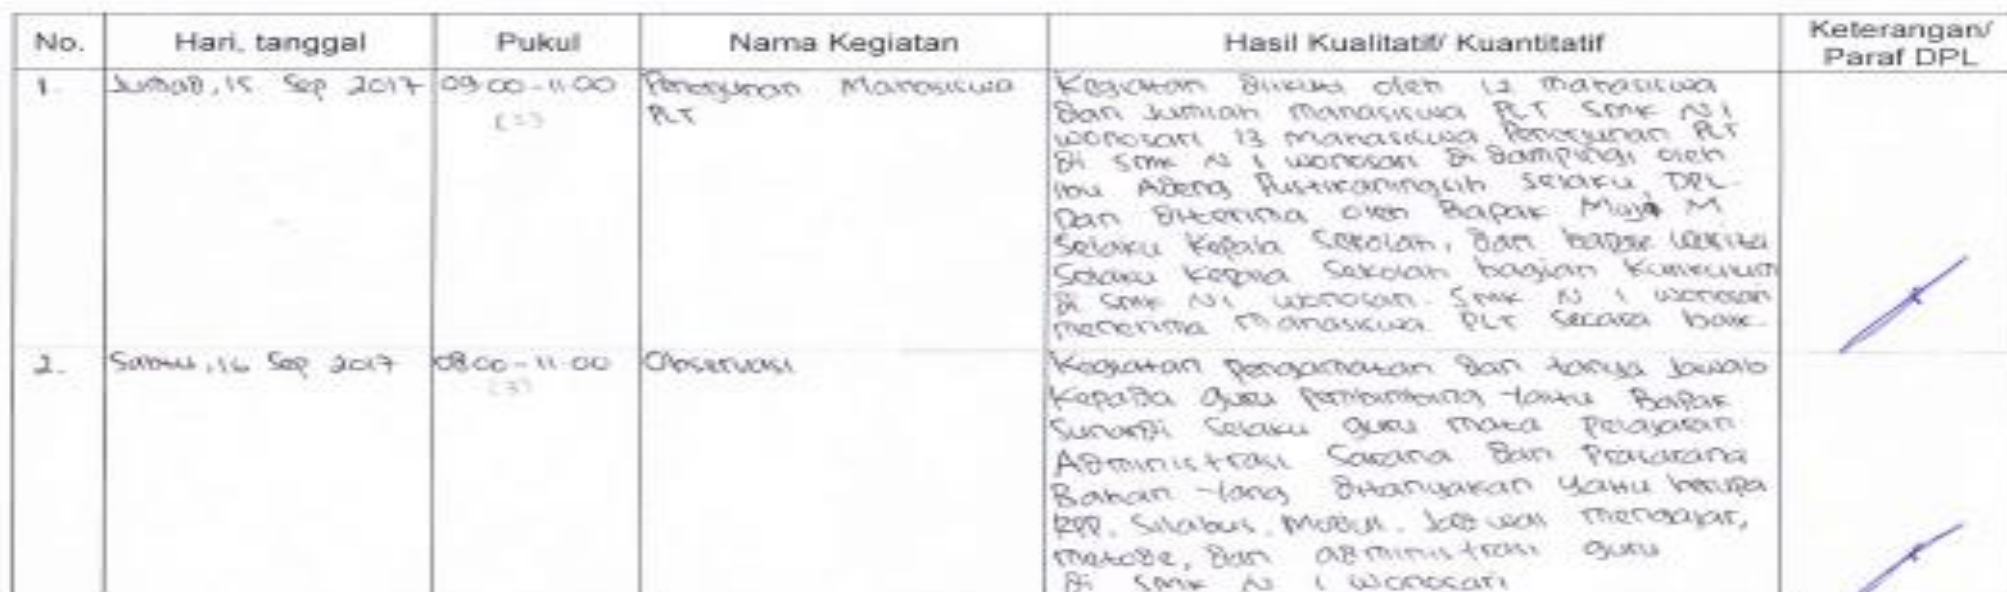 No. Hari, tanggal Pukul Nama Kegiatan Hasil Kualitatif/ Kuantitatif Keterangan/
Paraf DPL
1. Jumat, 15 Sep 2017 09.00-11.00 Penerjunan Mahasiswa Kegiatan diikuti oleh 12 mahasiswa
(2) PLT dari jumlah mahasiswa PLT SMK N 1
wonosari 13 mahasiswa Penerjunan PLT
di SMK N 1 wonosari di dampingi oleh
Ibu Adeng Pustikaningsih selaku DPL
Dan diterima oleh Bapak M
selaku Kepala Sekolah, dan bapak
selaku Kepala Sekolah bagian Kurikulum
di SMK N 1 wonosari. SMK N 1 wonosari
menerima mahasiswa PLT secara baik.
2. Sabtu, 16 Sep 2017 08.00-11.00 Observasi Kegiatan pengamatan dan tanya jawab
(3) Kepada guru pembimbing yaitu Bapak
Sunardi selaku guru mata pelajaran
Administrasi Sarana dan Prasarana
Bahan yang ditanyakan yaitu berupa
RPP, Silabus, Modul, Jadwal mengajar,
metode, dan administrasi guru
di SMK N 1 Wonosari